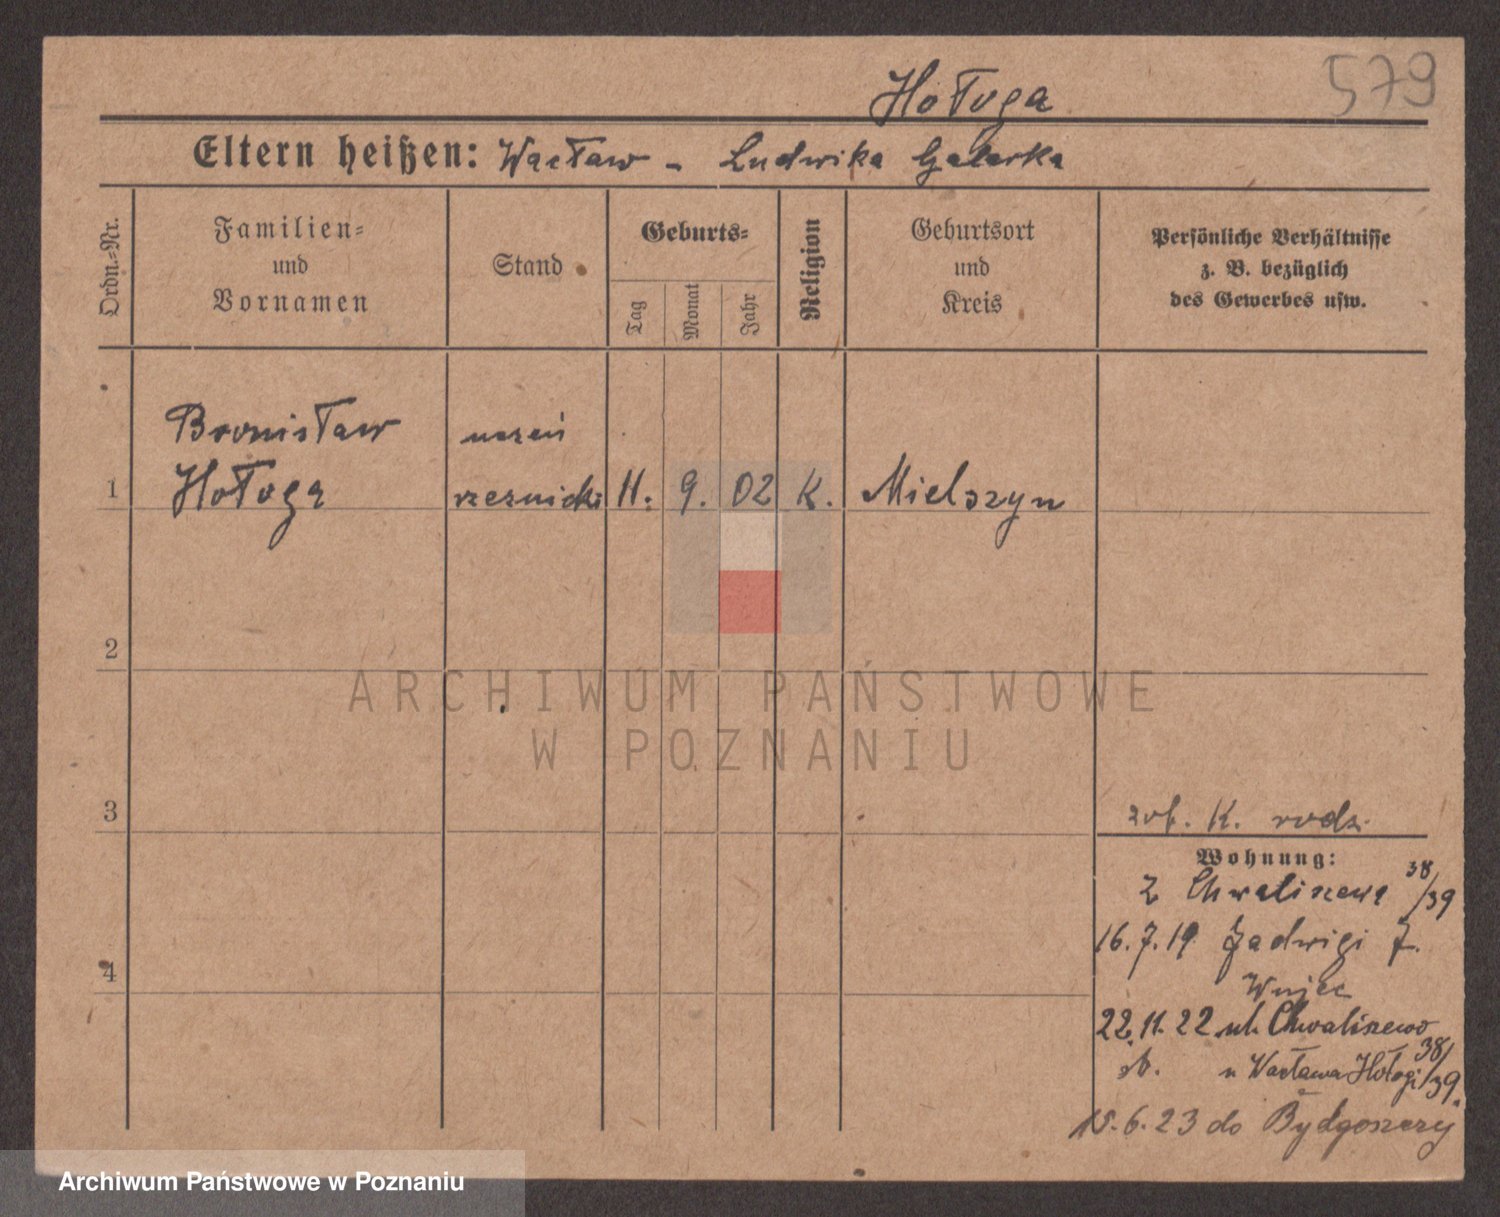 Hołoga
579
Eltern heißen: Wacław - Ludwika
Ordn.-Nr.
Familien-
und
Vornamen
Stand
Geburts-
Tag
Monat
Jahr
Religion
Geburtsort
und
Kreis
Persönliche Verhältnisse
z. B. bezüglich
des Gewerbes usw.
Bronisław uczeń
1 Hołoga rzeznicki 11. 9. 02 K. Mielszyn
2
ARCHIWUM PAŃSTWOWE
W POZNANIU
3
zob. K. rodz.
Wohnung:
Z Chwaliszewa 38/39
16.7.19 Jadwigi 7.
4
Wujec
22.11.22 ul. Chwaliszewo 38/39.
u Wacława Hołogi
15.6.23 do Bydgoszczy
Archiwum Państwowe w Poznaniu